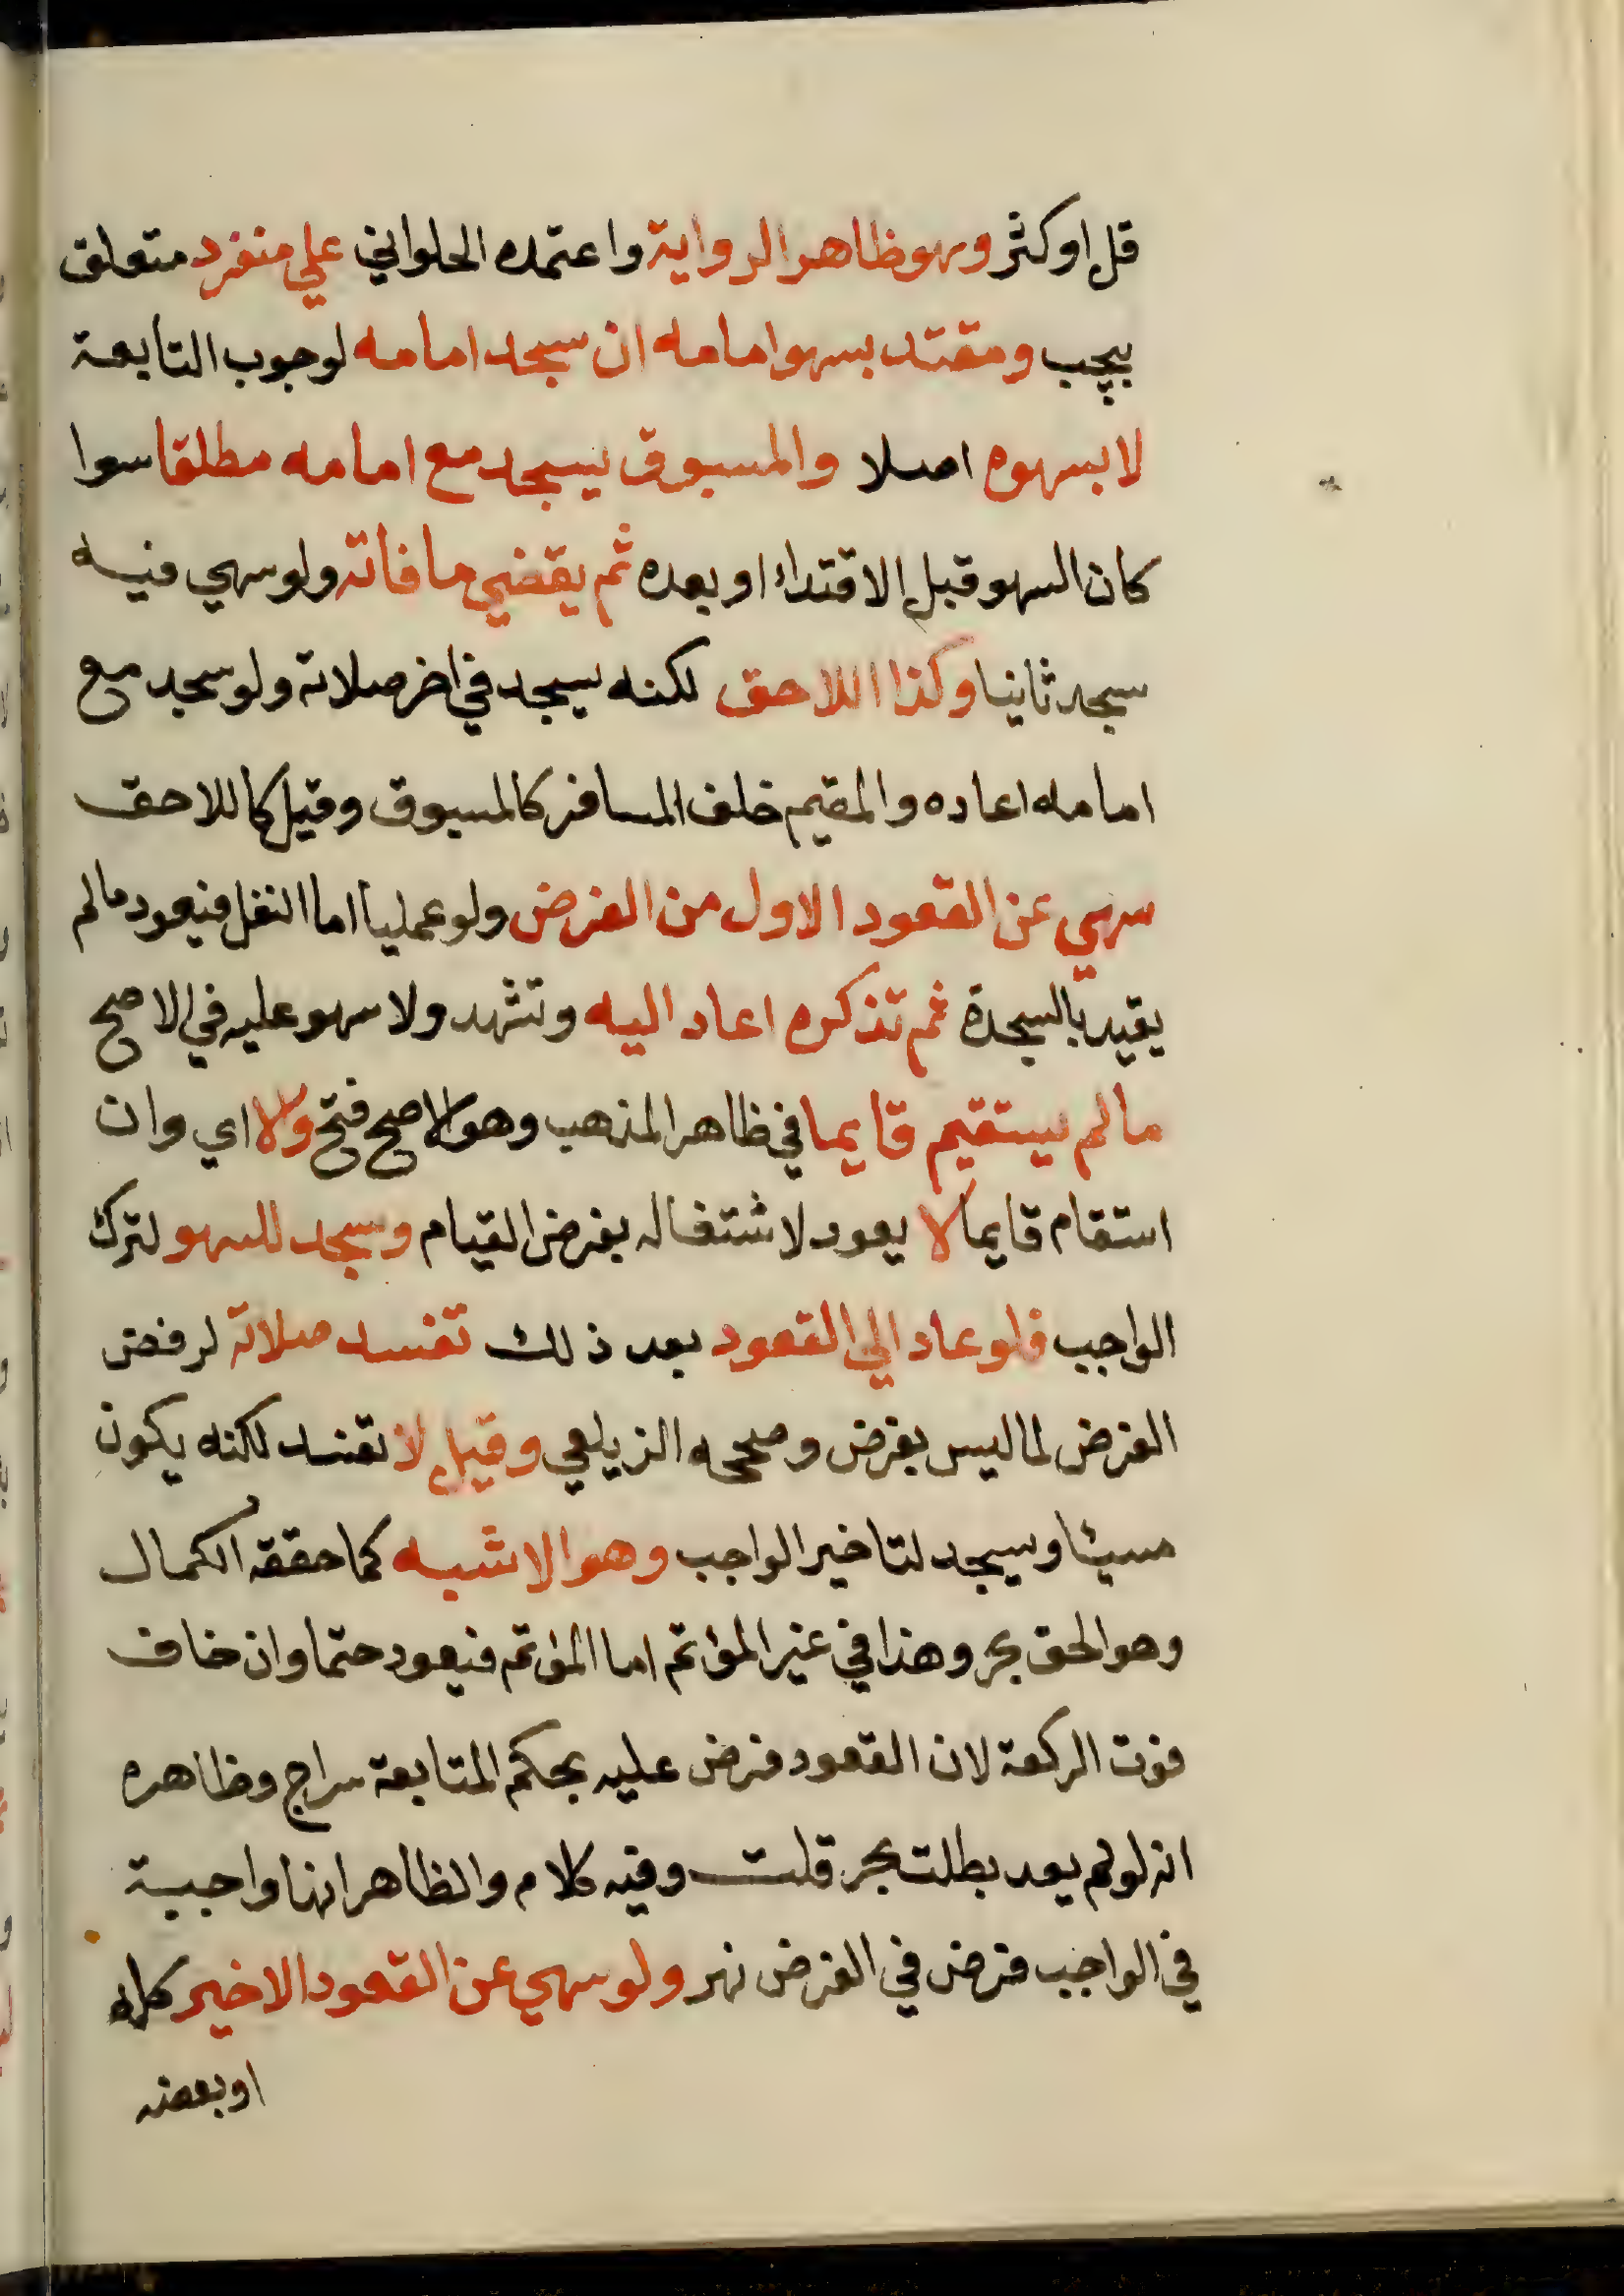 قل او كثر وهو ظاهر الرواية واعتمده الحلواني علي منفرد متعلق
بيجب ومقتد بسهو امامه ان سجد امامه لوجوب التابعة
لا بسهوه اصلا والمسبوق يسجد مع امامه مطلقا سوا
كان السهو قبل الاقتداء او بعده ثم يقضي ما فاته ولو سهي فيه
سجد ثانيا وكذا اللاحق لكنه يسجد في اخر صلاته ولو سجد مع
امامه اعاده والمقيم خلف المسافر كالمسبوق وقيل كاللاحق
سهي عن القعود الاول من الفرض ولو عمليا اما النفل فيعود ما لم
يقيد بالسجدة ثم تذكره اعاد اليه وتشهد ولا سهو عليه في الاصح
ما لم يستقيم قايما في ظاهر المذهب وهو الاصح فتح والا اي وان
استقام قايما لا يعود لاشتغاله بفرض القيام وسجد للسهو لترك
الواجب فلو عاد الي القعود بعد ذلك تفسد صلاته لرفض
الفرض لما ليس بفرض وصححه الزيلعي وقيل لا تفسد لكنه يكون
مسيئا ويسجد لتاخير الواجب وهو الاشبه كما حققه الكمال
وهو الحق بحر وهذا في غير المؤتم اما المؤتم فيعود حتما وان خاف
فوت الركعة لان القعود فرض عليه بحكم المتابعة سراج وظاهره
انه لو لم يعد بطلت بحر قلت وفيه كلام والظاهر انها واجبة
في الواجب فرض في الفرض نهر ولو سهي عن القعود الاخير كله
او بعضه